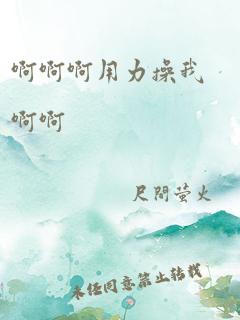 啊啊啊用力操我
啊啊
尺间萤火
未经同意禁止转载